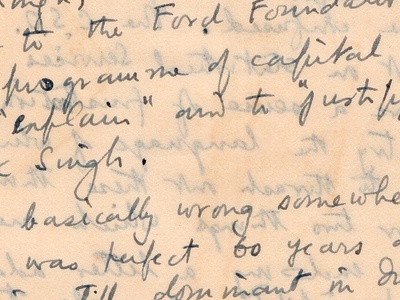 to the Ford Foundat
programme of capital
"explain" and to "justify
Singh.
basically wrong somewhe
was perfect 60 years a
Till dominant in